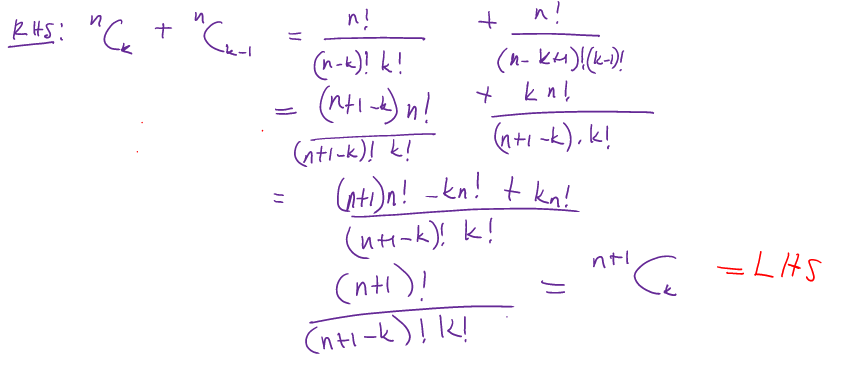 RHS: ⁿCₖ + ⁿCₖ₋₁ = n!/((n-k)! k!) + n!/((n-k+1)!(k-1)!)
= (n+1-k) n!/((n+1-k)! k!) + k n!/((n+1-k). k!)
= ((n+1)n! - kn! + kn!)/((n+1-k)! k!)
(n+1)!/((n+1-k)! k!) = ⁿ⁺¹Cₖ = LHS